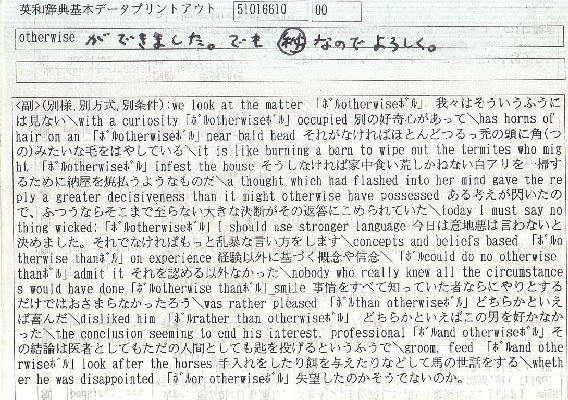 英和辞典基本データプリントアウト 51016610 00
otherwise ができました。でも 秘 なのでよろしく。
<副>(別様,別方式,別条件):we look at the matter 「ﾎﾞﾙotherwiseﾎﾞﾙ」 我々はそういうふうに
は見ない＼with a curiosity「ﾎﾞﾙotherwiseﾎﾞﾙ」occupied 別の好奇心があって＼has horns of
hair on an 「ﾎﾞﾙotherwiseﾎﾞﾙ」near bald head それがなければほとんどつるっ禿の頭に角(つ
の)みたいな毛をはやしている＼it is like burning a barn to wipe out the termites who mig
ht 「ﾎﾞﾙotherwiseﾎﾞﾙ」 infest the house そうしなければ家中食い荒しかねない白アリを一掃す
るために納屋を焼払うようなものだ＼a thought which had flashed into her mind gave the re
ply a greater decisiveness than it might otherwise have possessed ある考えが閃いたの
で、ふつうならそこまで至らない大きな決断がその返答にこめられていた＼today I must say no
thing wicked;「ﾎﾞﾙotherwiseﾎﾞﾙ」I should use stronger language 今日は意地悪は言わないと
決めました。それでなければもっと乱暴な言い方をします＼concepts and beliefs based 「ﾎﾞﾙo
therwise thanﾎﾞﾙ」on experience 経験以外に基づく概念や信念＼「ﾎﾞﾙcould do no otherwise
thanﾎﾞﾙ」admit it それを認める以外なかった＼nobody who really knew all the circumstance
s would have done「ﾎﾞﾙotherwise thanﾎﾞﾙ」smile 事情をすべて知っていた者ならにやりとする
だけではおさまらなかったろう＼was rather pleased 「ﾎﾞﾙthan otherwiseﾎﾞﾙ」どちらかといえ
ば喜んだ＼disliked him 「ﾎﾞﾙrather than otherwiseﾎﾞﾙ」 どちらかといえばこの男を好かなか
った＼the conclusion seeming to end his interest, professional「ﾎﾞﾙand otherwiseﾎﾞﾙ」そ
の結論は医者としてもただの人間としても匙を投げるというふうで＼groom, feed 「ﾎﾞﾙand othe
rwiseﾎﾞﾙ」look after the horses 手入れをしたり餌を与えたりなどして馬の世話をする＼wheth
er he was disappointed 「ﾎﾞﾙor otherwiseﾎﾞﾙ」失望したのかそうでないのか。